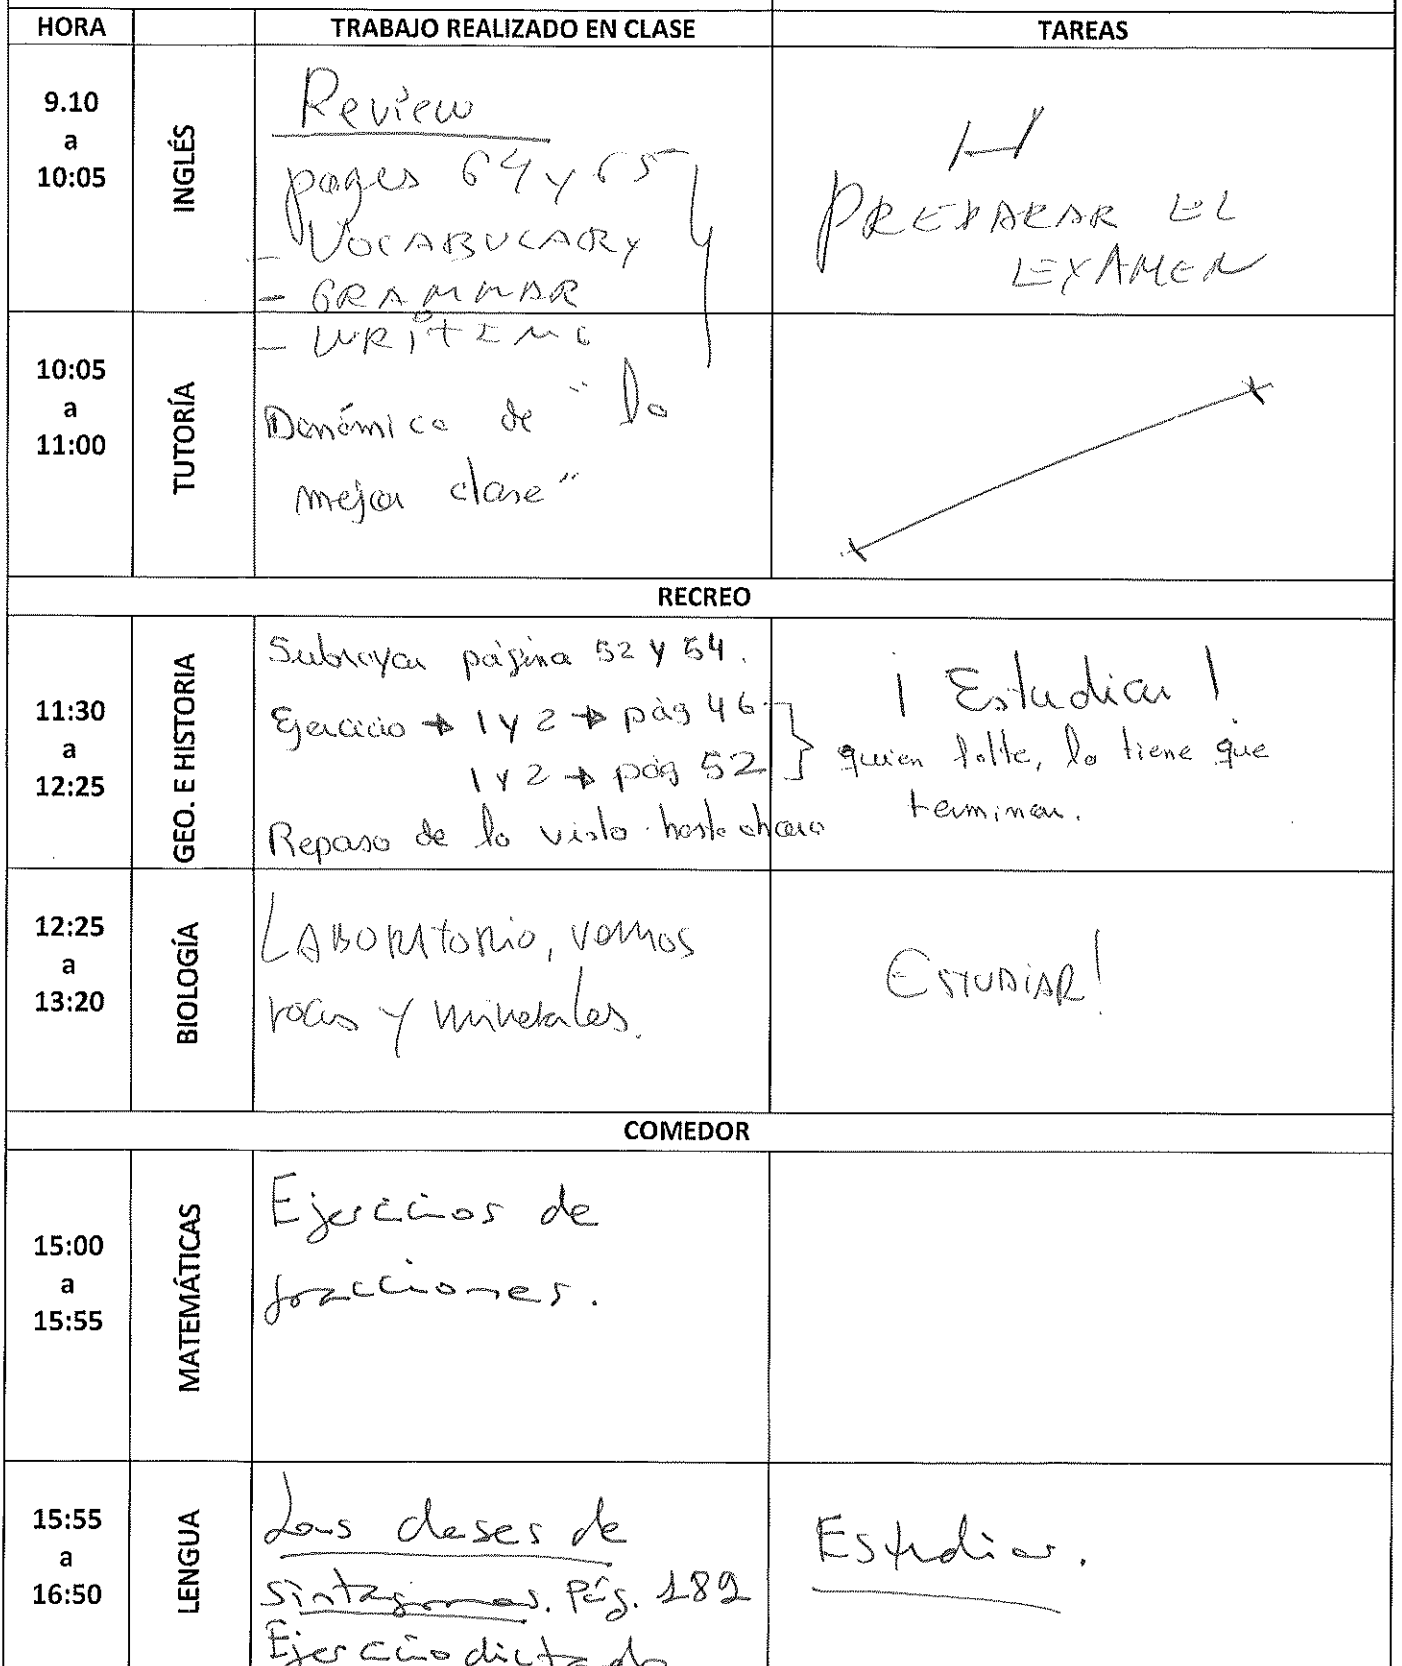 HORA TRABAJO REALIZADO EN CLASE TAREAS
9.10
a
10:05
INGLÉS
Review
pages 64 y 65
- VOCABULARY
- GRAMMAR
- WRiTING
H
PREPARAR EL
EXAMEN
10:05
a
11:00
TUTORÍA
Dinámica de "la
mejor clase"
RECREO
11:30
a
12:25
GEO. E HISTORIA
Subrayar página 52 y 54.
Ejercicio → 1 y 2 → pág 46
1 y 2 → pág 52
Repaso de lo visto hasta ahora
¡Estudiar!
quien falte, lo tiene que
terminar.
12:25
a
13:20
BIOLOGÍA
LABORATORIO, vemos
rocas y minerales.
ESTUDIAR!
COMEDOR
15:00
a
15:55
MATEMÁTICAS
Ejercicios de
fracciones.
15:55
a
16:50
LENGUA
Las clases de
sintagmas. Pág. 189
Ejercicio dictado
Estudiar.